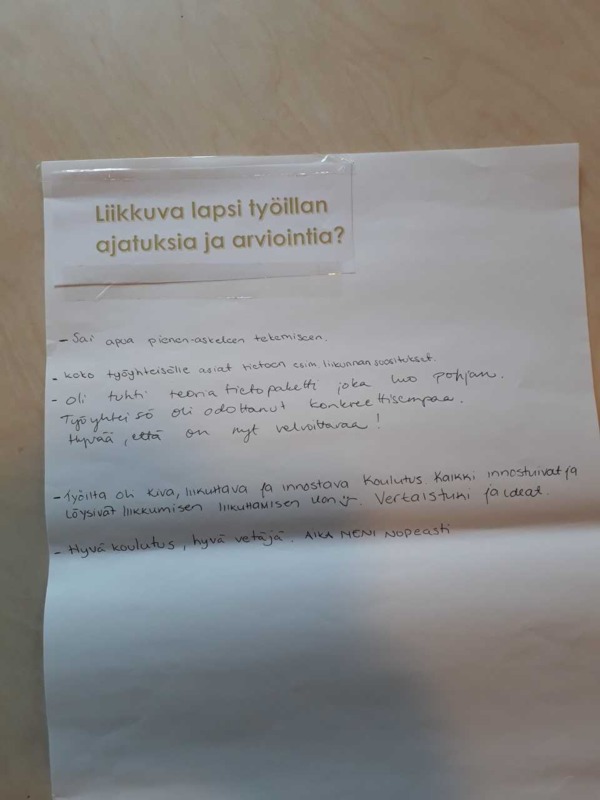 Liikkuva lapsi työillan
ajatuksia ja arviointia?
- Sai apua pienen-askeleen tekemiseen.
- koko työyhteisölle asiat tietoon esim. liikunnan suositukset.
- oli tuhti teoria tietopaketti joka luo pohjan.
Työyhteisö oli odottanut konkreettisempaa.
Hyvää, että on nyt velvoittavaa!
- Työilta oli kiva, liikuttava ja innostava koulutus. Kaikki innostuivat ja
löysivät liikkumisen liikuttamisen ilon. Vertaistuki ja ideat.
- Hyvä koulutus, hyvä vetäjä. AIKA MENI NOPEASTI